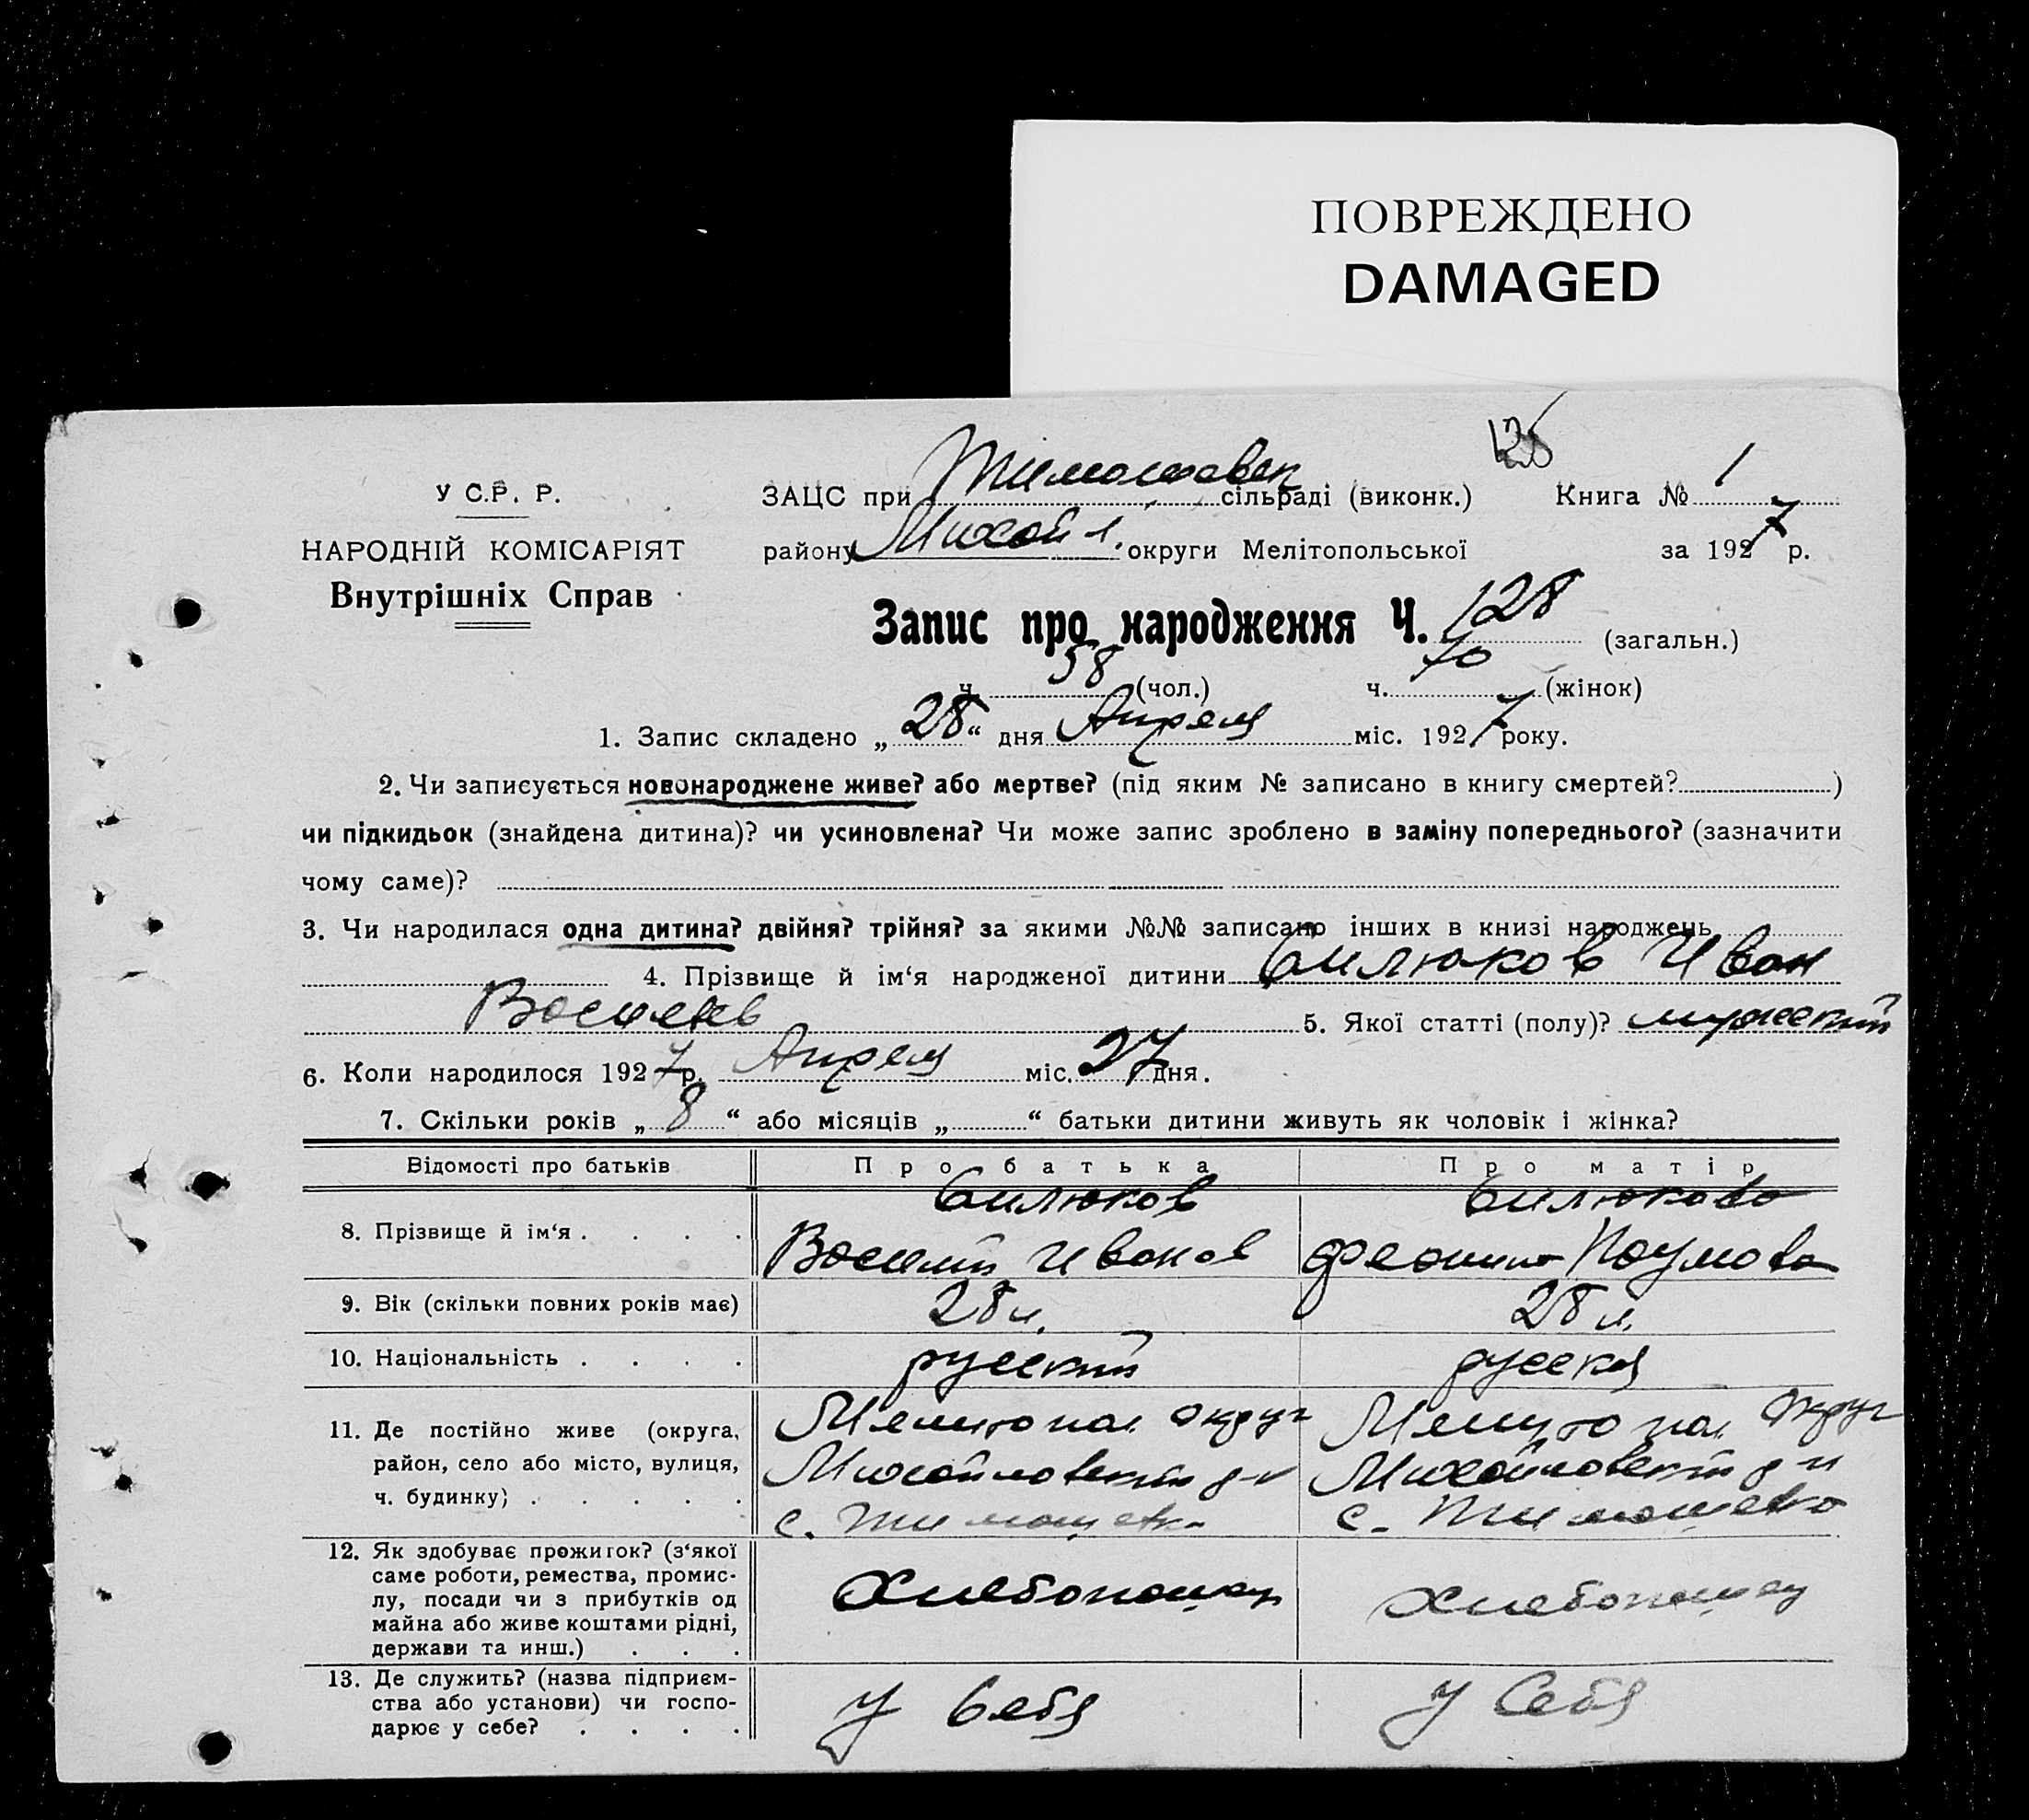 ПОВРЕЖДЕНО
DAMAGED
128
У С.Р. Р.
НАРОДНІЙ КОМІСАРІЯТ
Внутрішніх Справ
ЗАЦС при Тимошевск сільраді (виконк.) Книга № 1
району Михайл. округи Мелітопольської за 1927 р.
Запис про народження Ч. 128 (загальн.)
ч. 58 (чол.) ч. 70 (жінок)
1. Запис складено „28“ дня Апреля міс. 1927 року.
2. Чи записується новонароджене живе? або мертве? (під яким № записано в книгу смертей? )
чи підкидьок (знайдена дитина)? чи усиновлена? Чи може запис зроблено в заміну попереднього? (зазначити
чому саме)?
3. Чи народилася одна дитина? двійня? трійня? за якими №№ записано інших в книзі народжень
4. Прізвище й ім‘я народженої дитини Билюков Иван
Васильев 5. Якої статті (полу)? мужский
6. Коли народилося 1927 р. Апреля міс. 27 дня.
7. Скільки років „8“ або місяців „ “ батьки дитини живуть як чоловік і жінка?
Відомості про батьків Про батька Про матір
8. Прізвище й ім‘я . . . . Билюков Билюкова
Василий Иванов Наумова
9. Вік (скільки повних років має) 28 л. 28 л.
10. Національність . . . . русский русская
11. Де постійно живе (округа, Мелитопол. округ Мелитопол. округ
район, село або місто, вулиця, Михайловский р-н Михайловский р-н
ч. будинку) . . . . . с. Тимошевка с. Тимошевка
12. Як здобуває прожиток? (з‘якої
саме роботи, ремества, промис-
лу, посади чи з прибутків од Хлебопашец Хлебопашец
майна або живе коштами рідні,
держави та инш.) . . .
13. Де служить? (назва підприєм-
ства або установи) чи госпо- у Себя у Себя
дарює у себе? . . . .